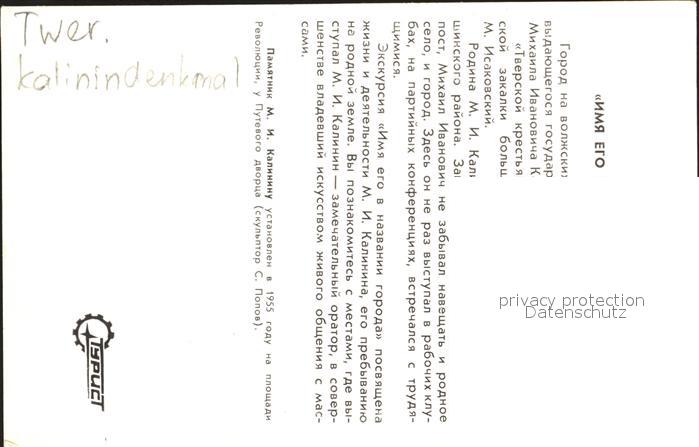 Twer.
Kalinindenkmal
«ИМЯ ЕГО
Город на волжских
выдающегося государ
Михаила Ивановича К
«Тверской крестья
ской закалки больш
М. Исаковский.
Родина М. И. Кали
шинского района. За
пост, Михаил Иванович не забывал навещать и родное
село, и город. Здесь он не раз выступал в рабочих клу-
бах, на партийных конференциях, встречался с трудя-
щимися.
Экскурсия «Имя его в названии города» посвящена
жизни и деятельности М. И. Калинина, его пребыванию
на родной земле. Вы познакомитесь с местами, где вы-
ступал М. И. Калинин — замечательный оратор, в совер-
шенстве владевший искусством живого общения с мас-
сами.
Памятник М. И. Калинину установлен в 1955 году на площади
Революции, у Путевого дворца (скульптор С. Попов).
ТУРИСТ
privacy protection
Datenschutz